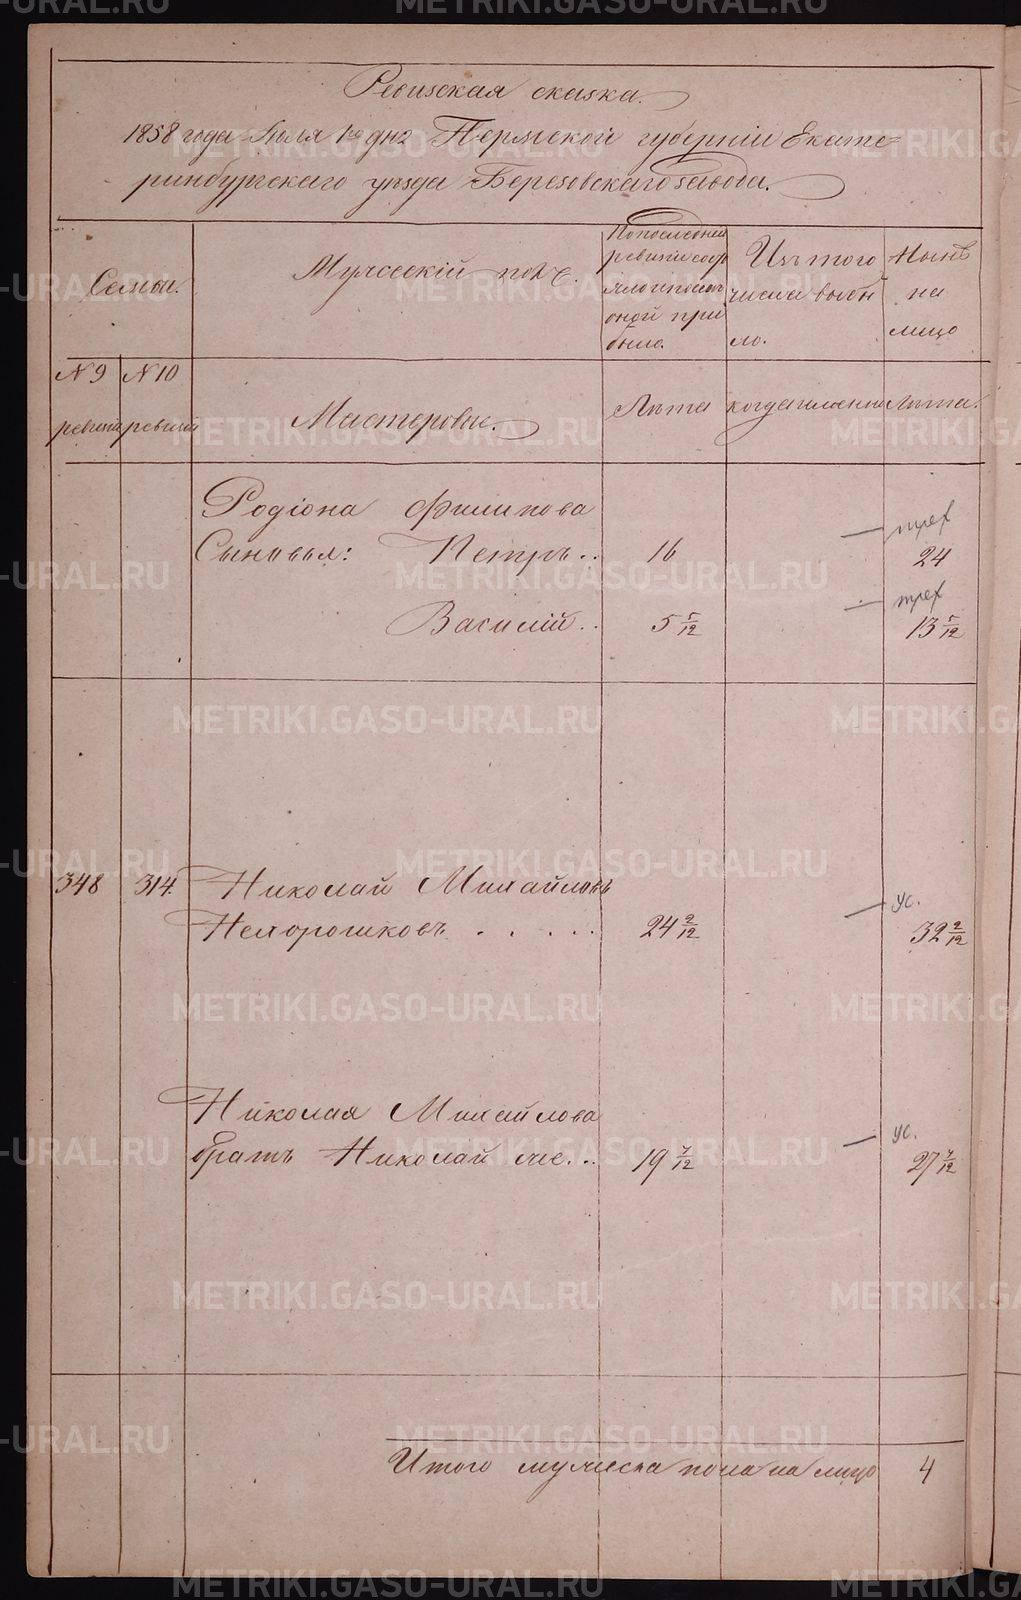 Ревизская сказка.
1858 года Июля 1го дня Пермской губернии Екате=
ринбургскаго уѣзда Березовскаго завода.
Семьи.
Мужескій полъ.
По последней
ревизіи сос
тояло и после
оной при
было.
Изъ того
числа выбы
ло.
Нынѣ
на
лицо
№ 9
ревизіи
№ 10
ревизіи
Мастеровые.
Лѣта
когда именно
Лѣта.
Родіона Филипова
Сыновья: Петръ.. 16 треф 24
Василій.. 5 5/12 треф 13 5/12
348 314. Николай Михайловъ
Нехорошковъ . . . . . 24 2/12 ус. 32 2/12
Николая Михайлова
братъ Николай же. .. 19 7/12 ус. 27 7/12
Итого мужеска пола на лицо 4
METRIKI.GASO-URAL.RU